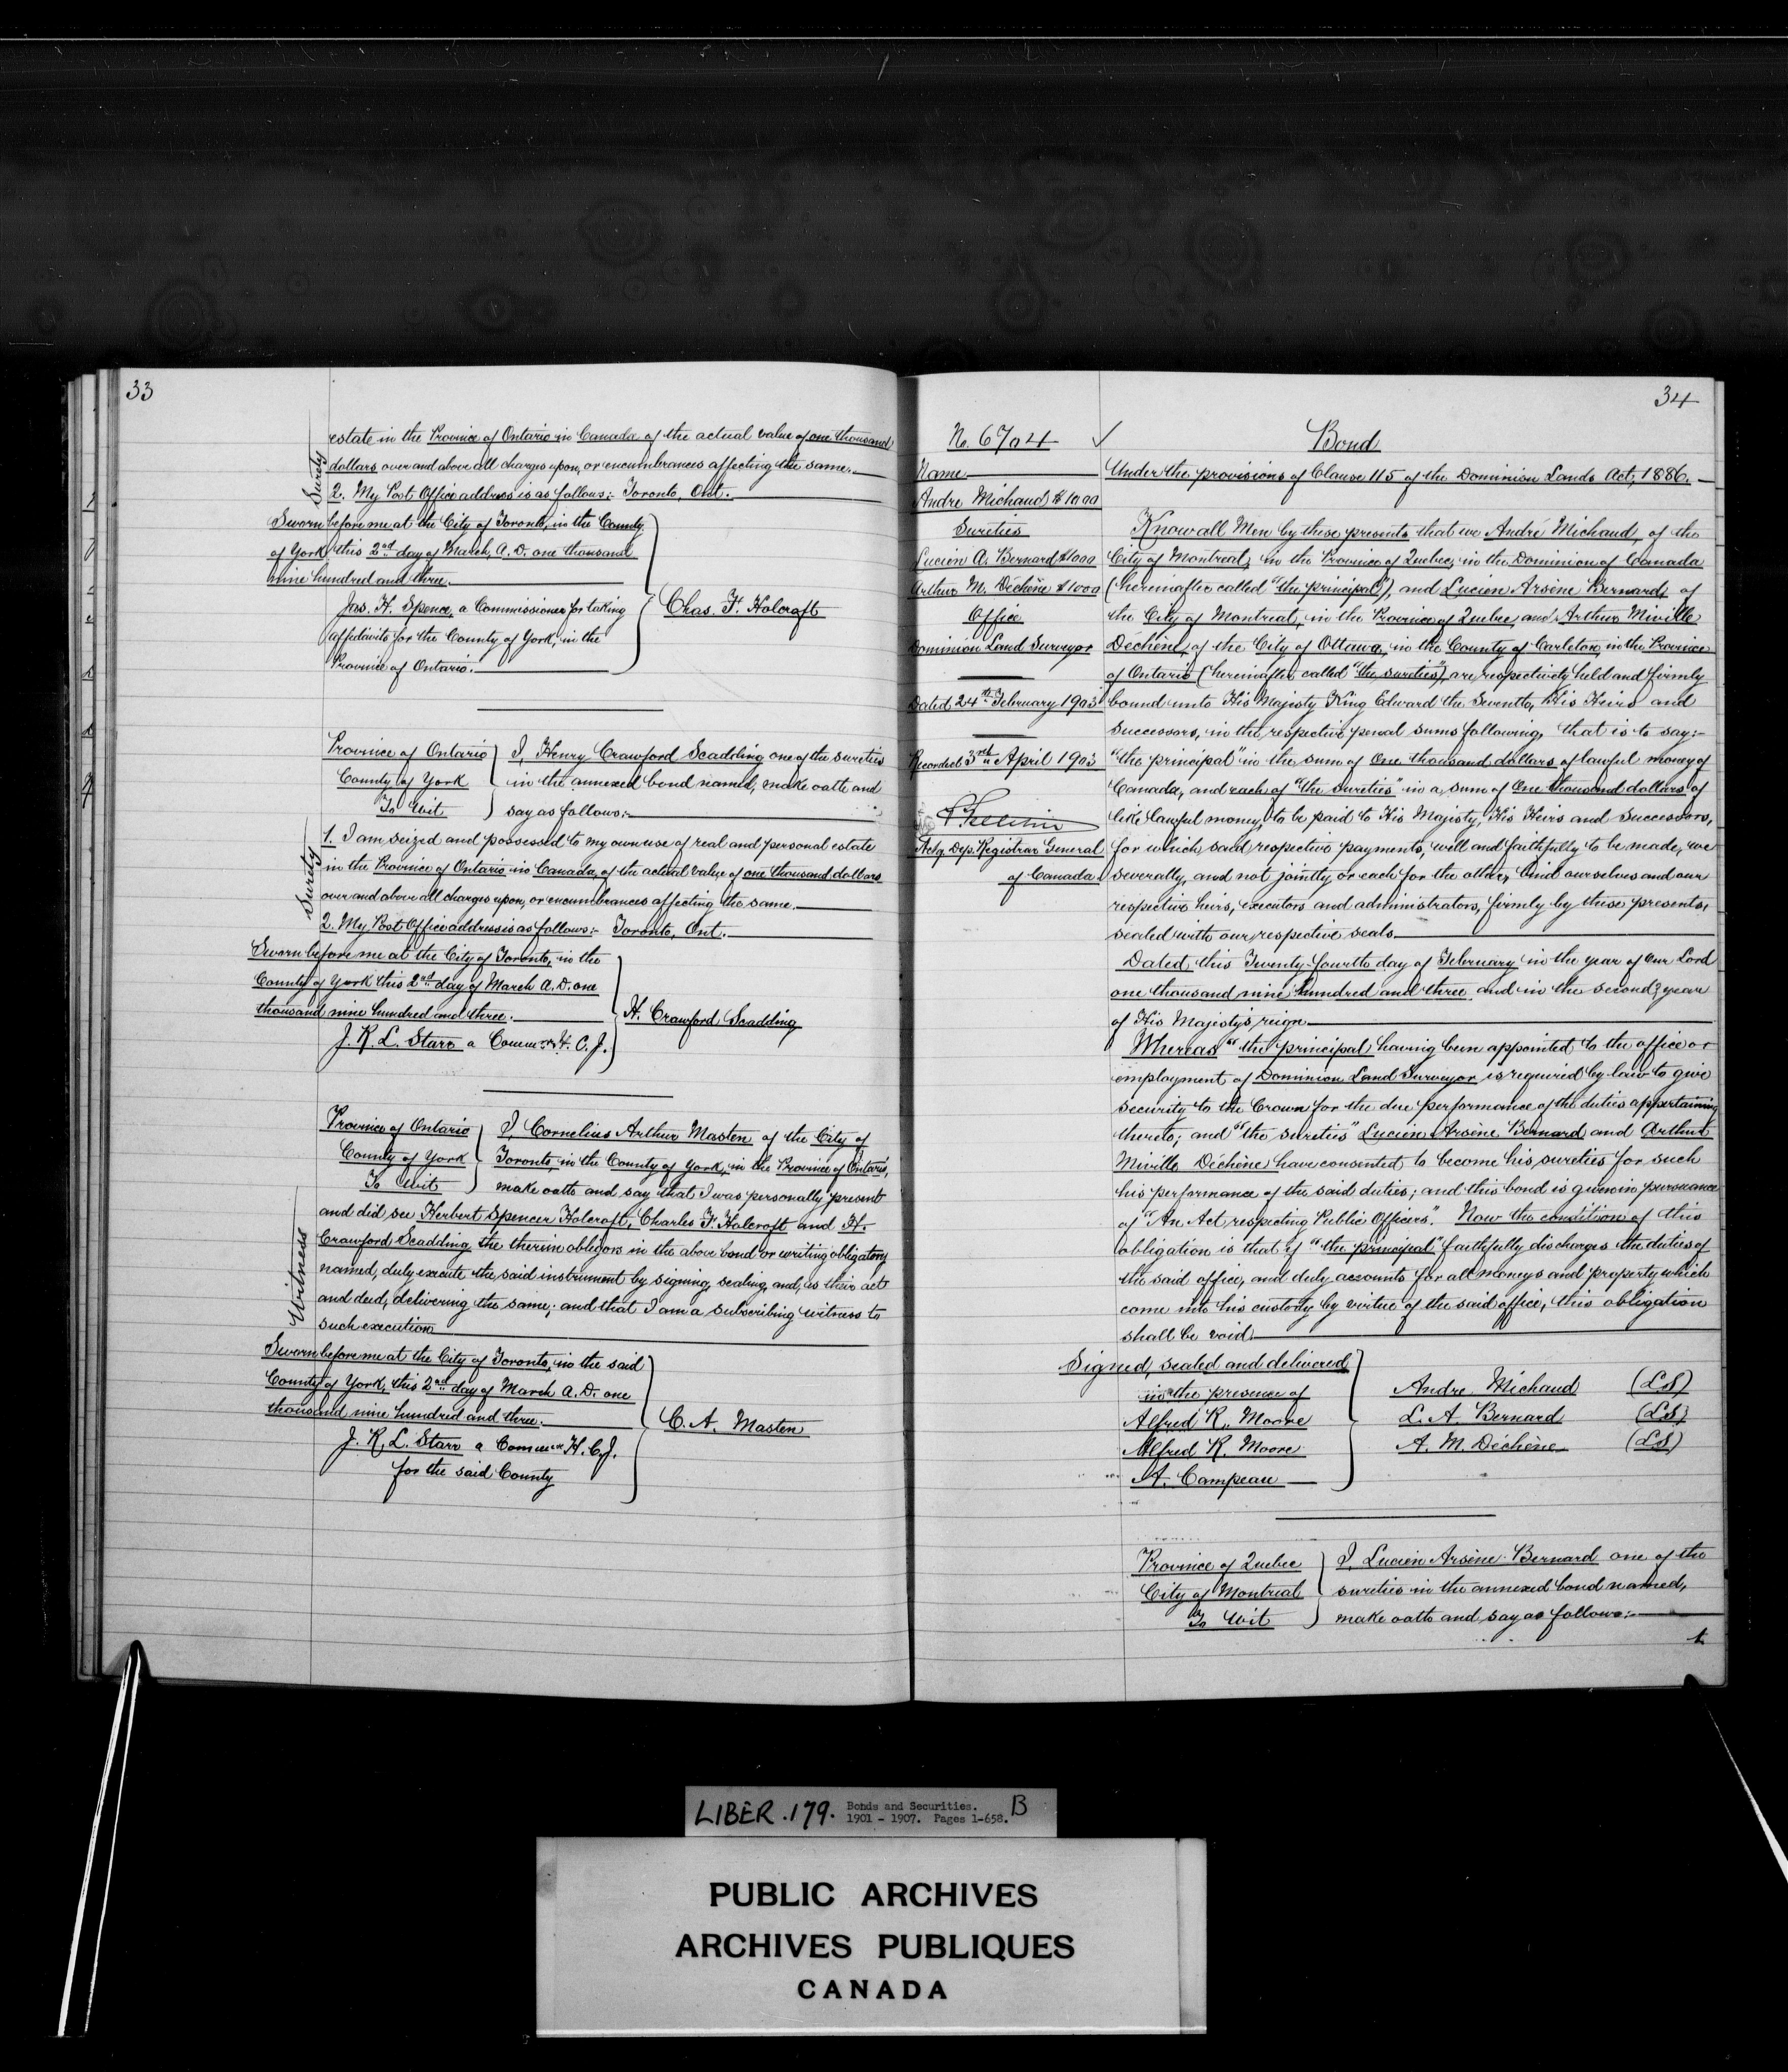 33
estate in the Province of Ontario in Canada of the actual value of one thousand
dollars over and above all charges upon, or encumbrances affecting the same.
2. My Post Office address is as follows:- Toronto, Ont.
Surety
Sworn before me at the City of Toronto, in the County
of York, this 2nd day of March, A. D. one thousand
nine hundred and three.
Jas. H. Spence, a Commissioner for taking
affidavits for the County of York, in the
Province of Ontario.
Chas. F. Holcroft
Province of Ontario
County of York
To Wit
I, Henry Crawford Scadding one of the sureties
in the annexed bond named, make oath and
say as follows:-
1. I am seized and possessed to my own use of real and personal estate
in the Province of Ontario in Canada, of the actual value of one thousand dollars
over and above all charges upon, or encumbrances affecting the same.
2. My Post Office address is as follows:- Toronto, Ont.
Surety
Sworn before me at the City of Toronto, in the
County of York this 2nd day of March A. D. one
thousand nine hundred and three.
J. R. L. Starr a Commr H. C. J.
H. Crawford Scadding
Province of Ontario
County of York
To Wit
I, Cornelius Arthur Masten of the City of
Toronto, in the County of York, in the Province of Ontario,
make oath and say that I was personally present
and did see Herbert Spencer Holcroft, Charles F. Holcroft and H.
Crawford Scadding the therein obligors in the above bond or writing obligatory
named, duly execute the said instrument by signing, sealing, and, as their act
and deed, delivering the same; and that I am a subscribing witness to
such execution
Witness
Sworn before me at the City of Toronto, in the said
County of York, this 2nd day of March A. D. one
thousand nine hundred and three.
J. R. L. Starr a Commr H. C. J.
for the said County
C. A. Masten
34
No. 6704
Name
Andre Michaud $1000
Sureties
Lucien A. Bernard $1000
Arthur M. Déchêne $1000
Office
Dominion Land Surveyor
Dated 24th February 1903
Recorded 3rd April 1903
Actg. Dep. Registrar General
of Canada
Bond
Under the provisions of Clause 115 of the Dominion Lands Act, 1886.
Know all Men by these presents that we André Michaud, of the
City of Montreal, in the Province of Quebec, in the Dominion of Canada
(hereinafter called "the principal"), and Lucien Arsène Bernard, of
the City of Montreal, in the Province of Quebec, and Arthur Miville
Déchêne, of the City of Ottawa, in the County of Carleton, in the Province
of Ontario (hereinafter called "the sureties"), are respectively held and firmly
bound unto His Majesty King Edward the Seventh, His Heirs and
Successors, in the respective penal sums following, that is to say:-
"the principal" in the sum of One thousand dollars of lawful money of
Canada, and each of "the sureties" in a sum of One thousand dollars of
like lawful money, to be paid to His Majesty, His Heirs and Successors,
for which said respective payments, well and faithfully to be made, we
severally, and not jointly or each for the other, bind ourselves and our
respective heirs, executors and administrators, firmly by these presents,
sealed with our respective seals.
Dated this Twenty-fourth day of February in the year of Our Lord
one thousand nine hundred and three and in the second year
of His Majesty's reign
Whereas "the principal having been appointed to the office or
employment of Dominion Land Surveyor is required by law to give
security to the Crown for the due performance of the duties appertaining
thereto; and "the sureties" Lucien Arsène Bernard and Arthur
Miville Déchêne have consented to become his sureties for such
his performance of the said duties; and this bond is given in pursuance
of "An Act respecting Public Officers". Now the condition of this
obligation is that if "the principal" faithfully discharges the duties of
the said office, and duly accounts for all moneys and property which
come into his custody by virtue of the said office, this obligation
shall be void.
Signed, sealed and delivered
in the presence of
Alfred R. Moore
Alfred R. Moore
A. Campeau
Andre Michaud (LS)
L. A. Bernard (LS)
A. M. Déchêne (LS)
Province of Quebec
City of Montreal
To Wit
I, Lucien Arsène Bernard one of the
sureties in the annexed bond named,
make oath and say as follows:-
1.
LIBER .179. Bonds and Securities. B
1901 - 1907. Pages 1-658.
PUBLIC ARCHIVES
ARCHIVES PUBLIQUES
CANADA